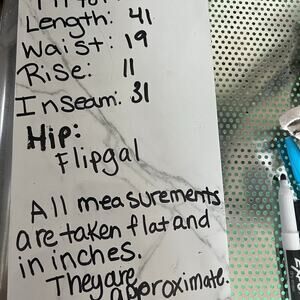 Length: 41
Waist: 19
Rise: 11
Inseam: 31
Hip:
Flipgal
All measurements
are taken flat and
in inches.
They are
approximate.